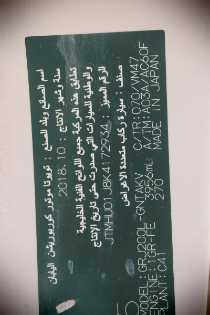 اسم الصانع وبلد الصنع : تويوتا موتور كوربوريشن اليابان
سنة وشهر الانتاج : 10 . 2018
تطابق هذه المركبة جميع اللوائح الفنية الخليجية
والوطنية للسيارات التي صدرت حتى تاريخ الإنتاج
الرقم المميز : JTMHU01J8K4172934
صنف : سيارة ركاب متعددة الاغراض
MODEL:GRJ200L-GNTAKV
ENGINE:1GR-FE 3956mL
PLANT:C41 270
C/TR:070/VM47
A/TM:A03A/AC60F
MADE IN JAPAN